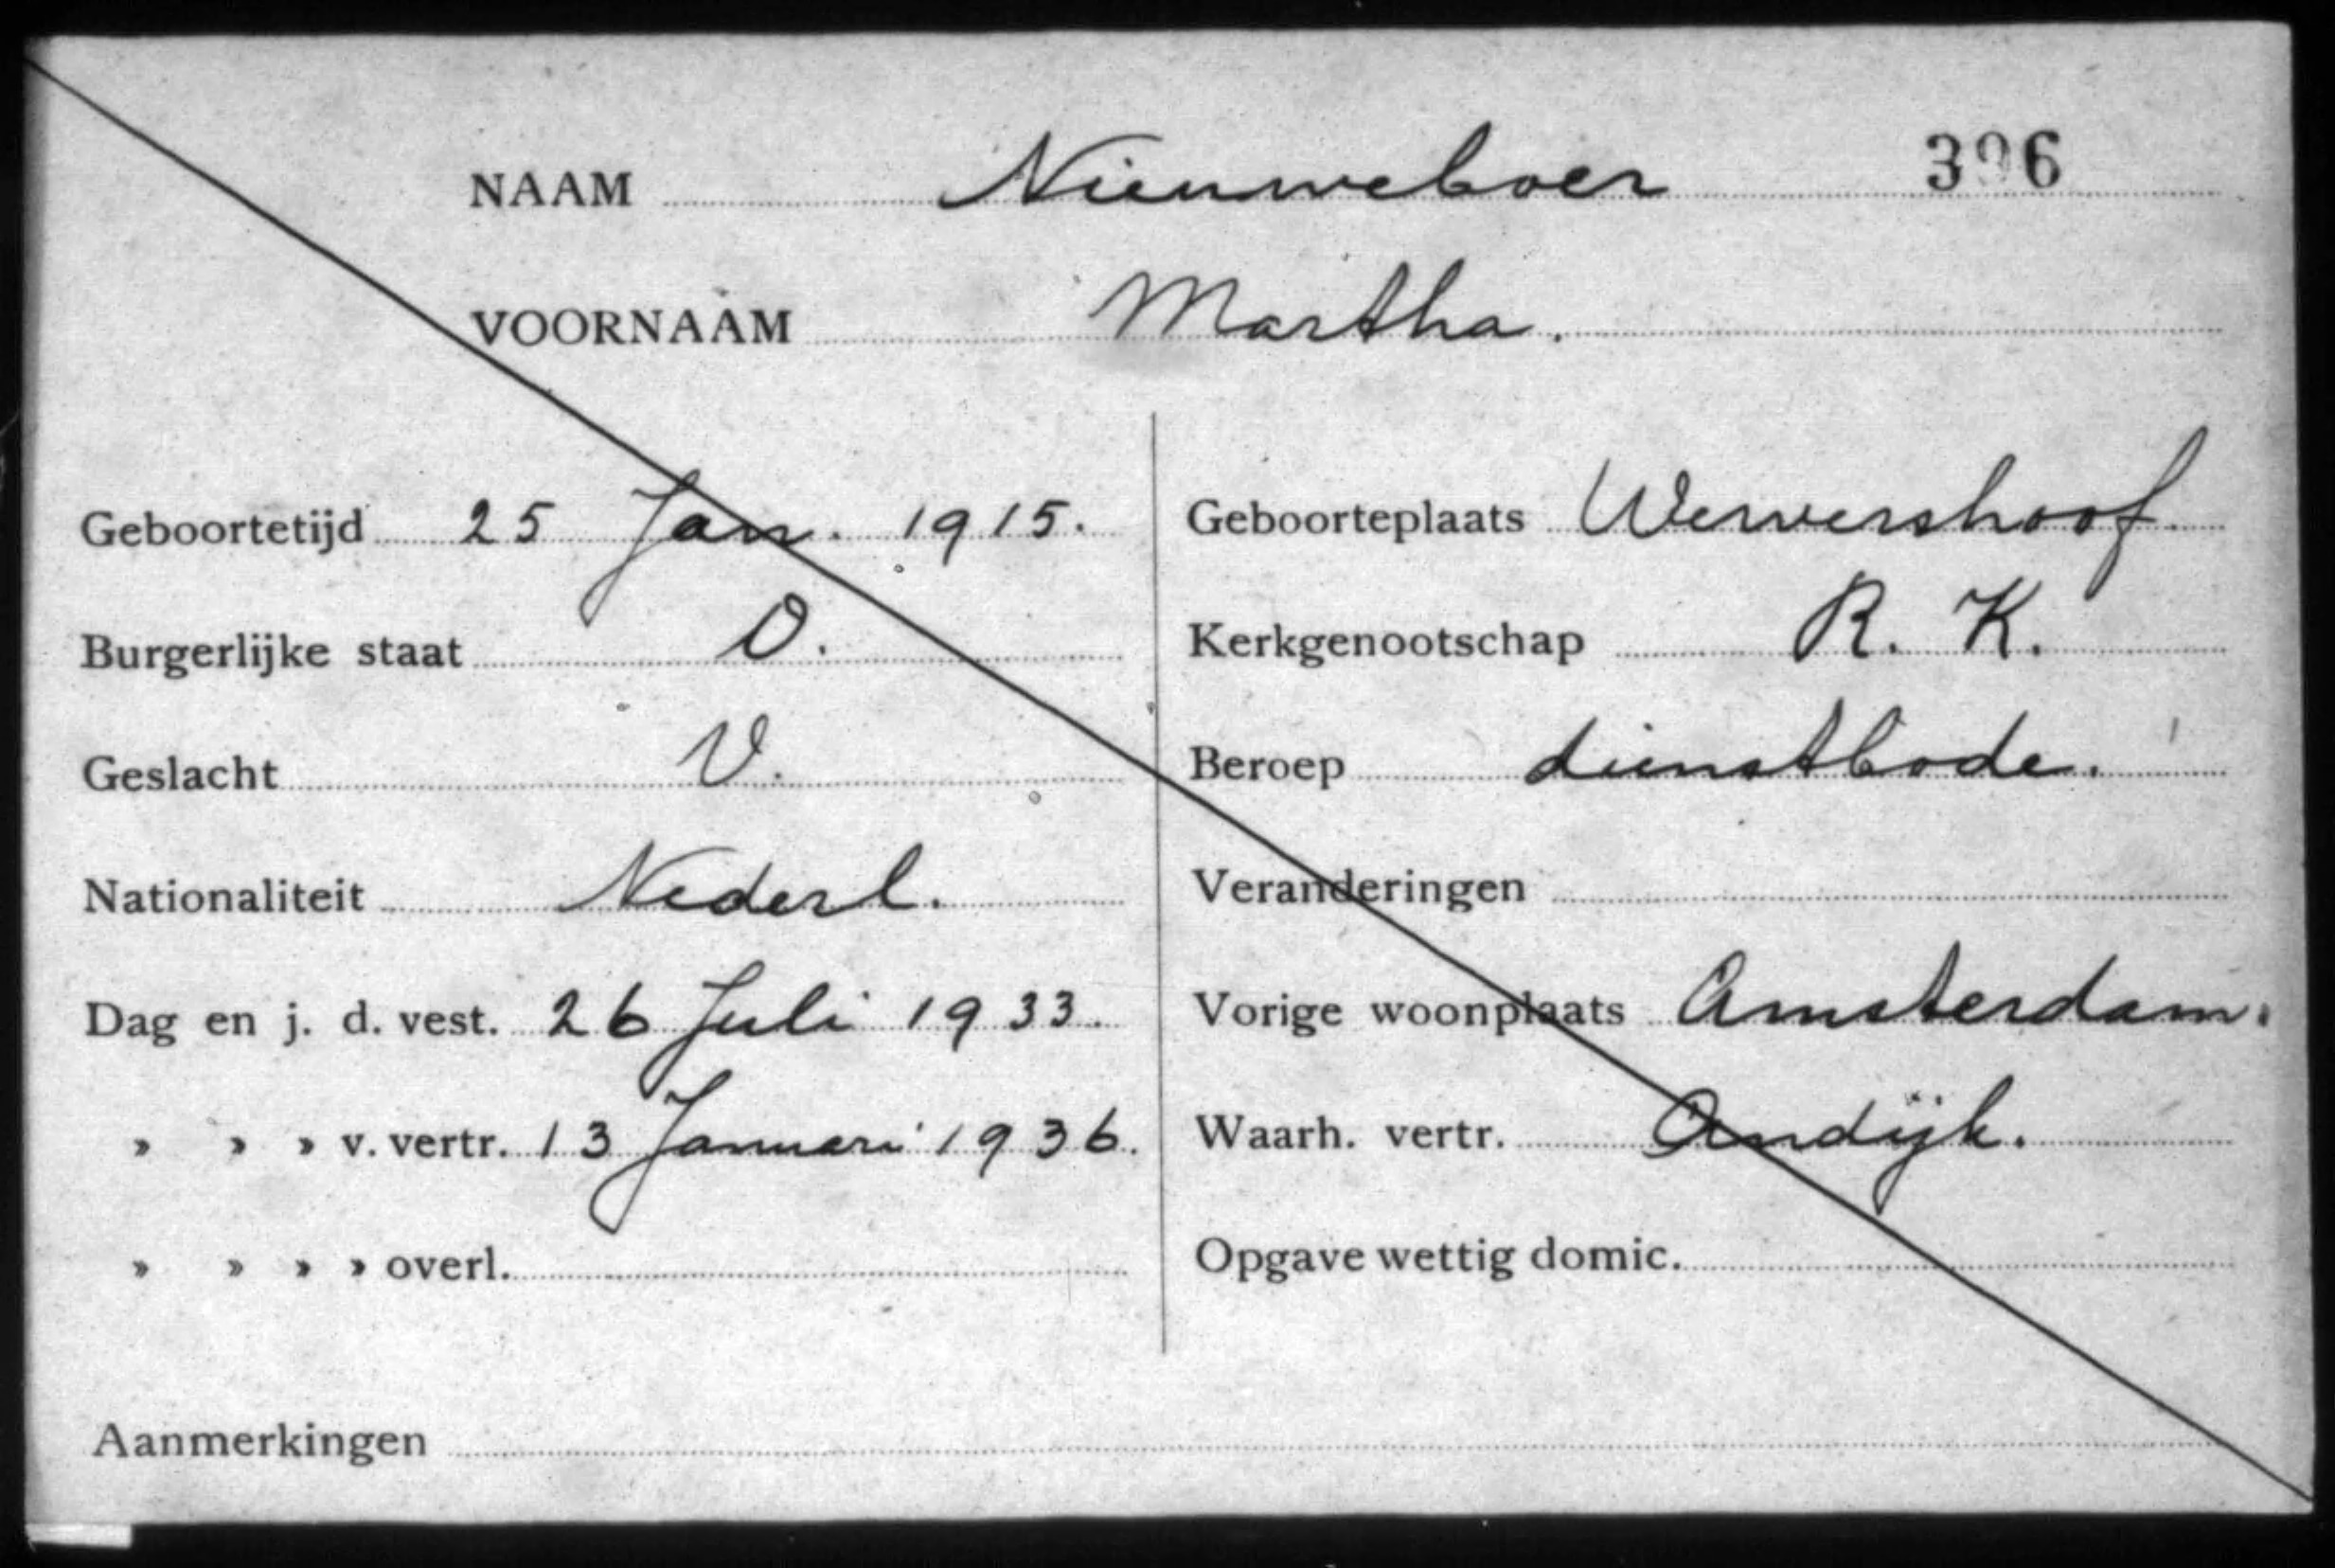 NAAM Nieuweboer 396
VOORNAAM Martha.
Geboortetijd 25 Jan. 1915.
Burgerlijke staat O.
Geslacht V.
Nationaliteit Nederl.
Dag en j. d. vest. 26 Juli 1933.
» » » v. vertr. 13 Januari 1936.
» » » » overl.
Geboorteplaats Wervershoof
Kerkgenootschap R. K.
Beroep dienstbode.
Veranderingen
Vorige woonplaats Amsterdam.
Waarh. vertr. Andijk.
Opgave wettig domic.
Aanmerkingen